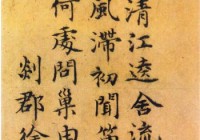 清江遶舍流
風滯初聞
何處問巢由
剡郡徐